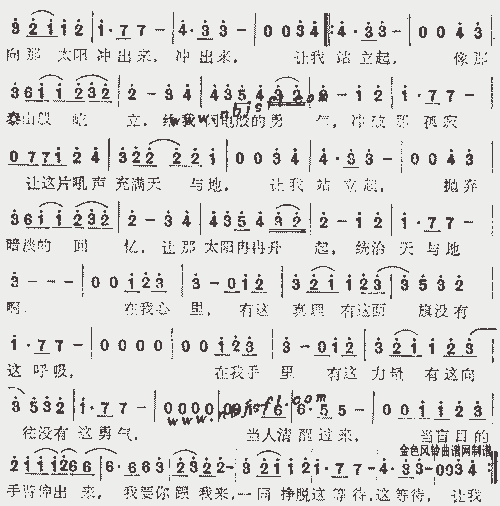 3 2 1 1 2 | 1· 7 7 - | 4· 3 3 - | 0 0 3 4 :| 4· 3 3 - | 0 0 4 3 |
向那 太阳 冲出来， 冲出来， 让我 站立起， 像那
3 6 1 1 2 3 2 | 2 - 3 4 | 4 3 5 4 3 2 | 2 - 1 2 | 1· 7 7 - |
泰山般 屹 立， 给我 闪电般的勇 气， 冲破 那 孤寂
0 7 7 1 2 4 | 3 2 2 2 2 1 | 0 0 3 4 | 4· 3 3 - | 0 0 4 3 |
让这片吼声 充满天 与地， 让我 站立起， 抛弃
3 6 1 1 2 3 2 | 2 - 3 4 | 4 3 5 4 3 2 | 2 - 1 2 | 1· 7 7 - |
暗淡的 回 忆， 让那 太阳冉冉升 起， 统治 天与地
3 - - - | 0 0 1 2 3 | 3 - 0 1 2 | 3 2 1 1 2 3 | 3 5 3 2 |
啊， 在我心 里， 有这 真理 有这面 旗没有
1· 7 7 - | 0 0 0 0 | 0 0 1 2 3 | 3 - 0 1 2 | 3 2 1 1 2 3 |
这 呼吸， 在我手 里 有这 力量 有这向
3 5 3 2 | 1· 7 7 - | 0 0 0 0 | 6· 5 5 - | 0 0 1 1 2 3 |
往没有 这勇气， 当人清醒过来， 当盲目的
2 1 1 1 1 2 6 6 | 6· 6 6 3 | 2 3 2 2 - | 3 2 1 1 2 | 1· 7 7 - | 4· 3 3 - | 0 0 3 4 :|
手臂伸出 来， 我要你 跟 我来，一同 挣脱这 等待，这等待， 让我
www.nbjsfl.com
金色风铃曲谱网制谱